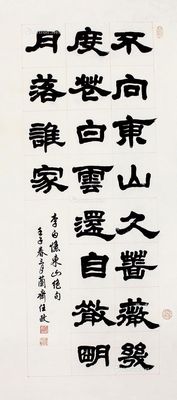 不向東山久薔薇幾
度花白雲還自散明
月落誰家
李白憶東山絕句
壬子春月蘭齋任政